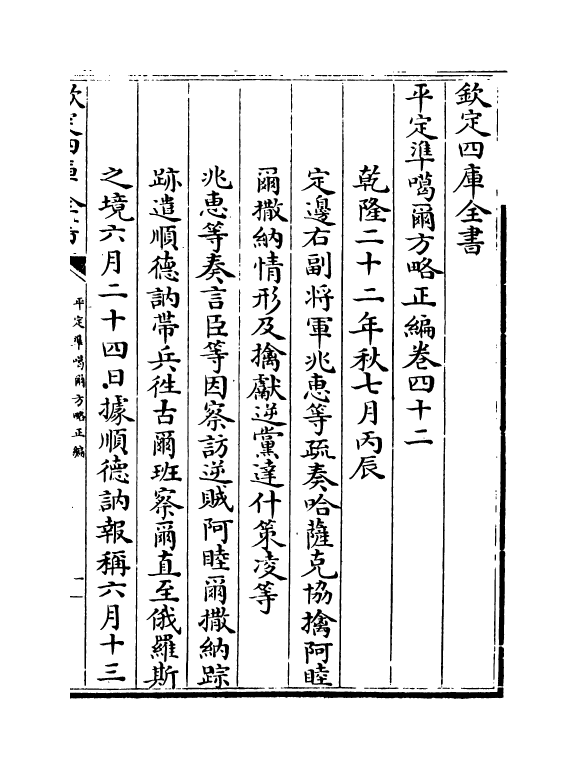 欽定四庫全書
平定準噶爾方略正編卷四十二
乾隆二十二年秋七月丙辰
定邊右副將軍兆惠等疏奏哈薩克協擒阿睦
爾撒納情形及擒獻逆黨達什策凌等
兆惠等奏言臣等因察訪逆賊阿睦爾撒納踪
跡遣順德訥帶兵徃古爾班察爾直至俄羅斯
之境六月二十四日據順德訥報稱六月十三
欽定四庫全書
平定準噶爾方略正編
一